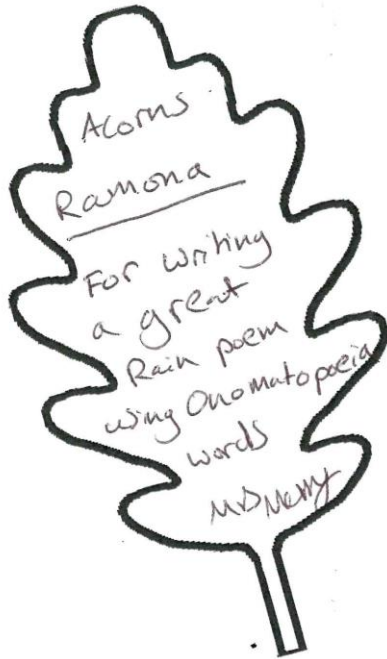 Acorns
Ramona
For writing
a great
Rain poem
using Onomatopoeia
words
Mrs Merry